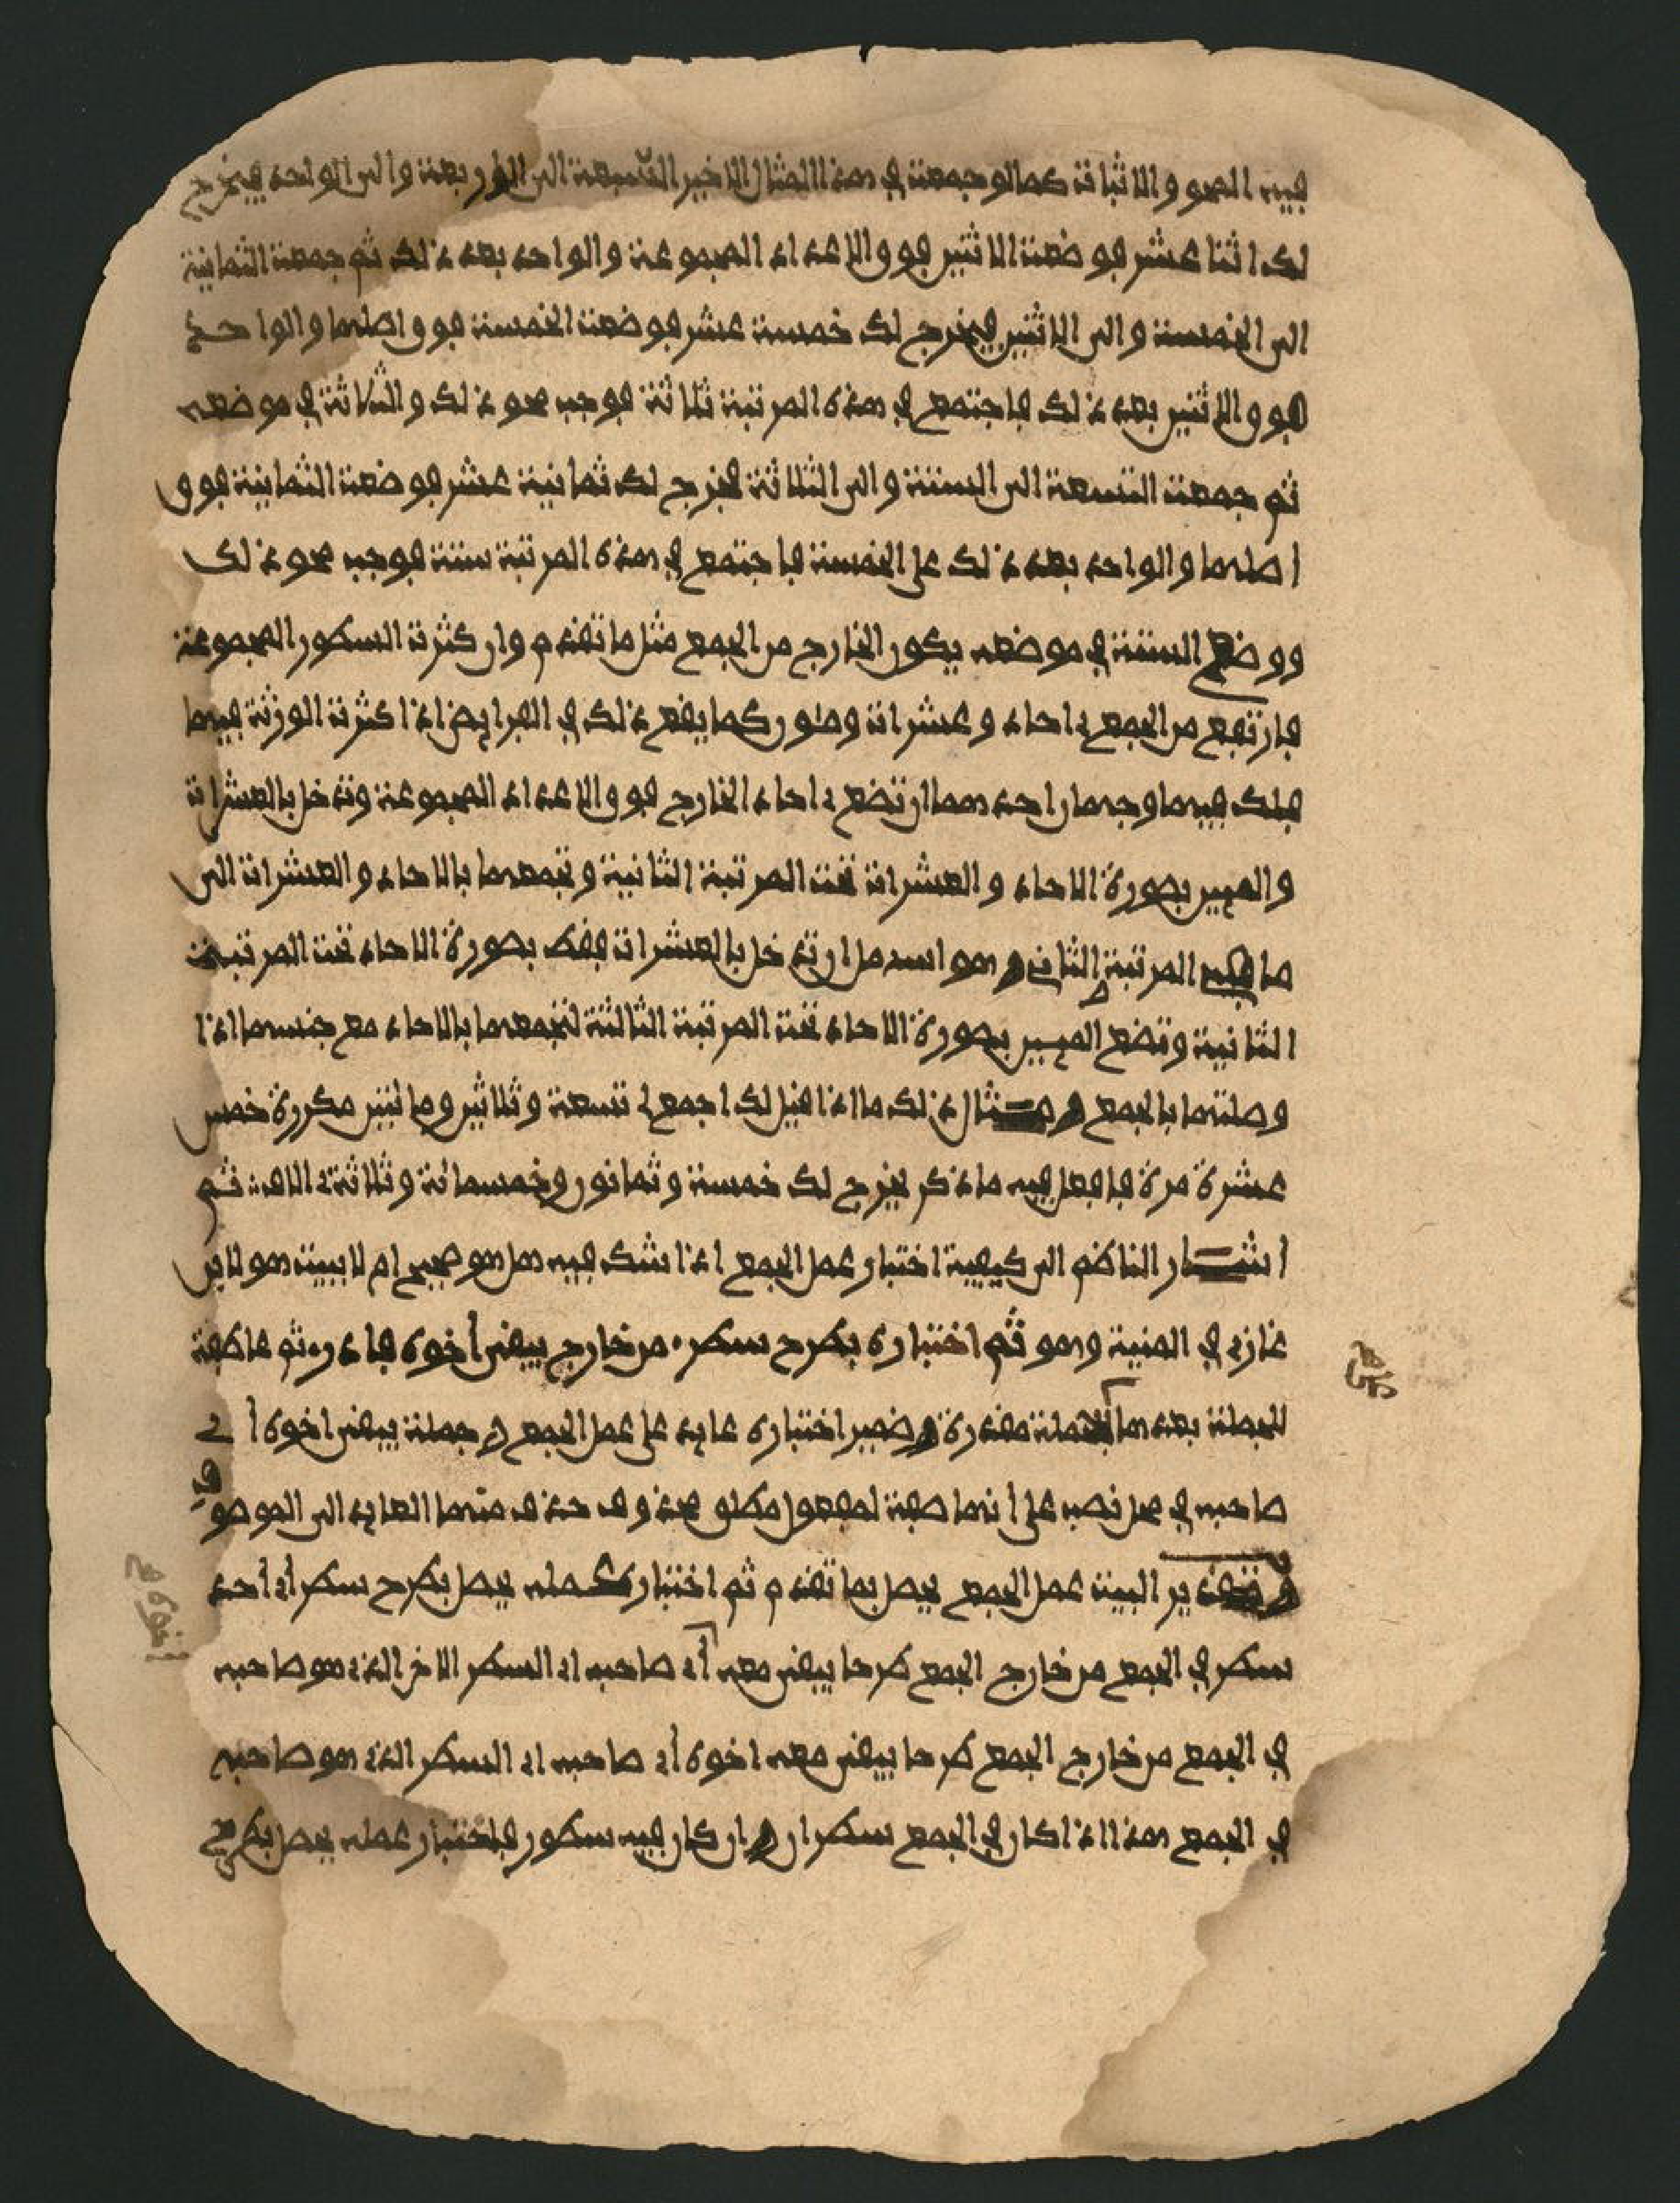 فيه المحو والاثبات كما لو جمعت في هذا المثال الاخير السبعة الى الاربعة والى الواحد فيخرج
لك اثنا عشر فوضعت الاثنين فوق الاعداد المجموعة والواحد بعد ذلك ثم جمعت الثمانية
الى الخمسة والى الاثنين فيخرج لك خمسة عشر فوضعت الخمسة فوق اصلها والواحد
فوق الاثنين بعد ذلك فاجتمع في هذه المرتبة ثلاثة فوجب محو ذلك والثلاثة في موضعه
ثم جمعت التسعة الى الستة والى الثلاثة فخرج لك ثمانية عشر فوضعت الثمانية فوق
اصلها والواحد بعد ذلك على الخمسة فاجتمع في هذه المرتبة ستة فوجب محو ذلك
ووضع الستة في موضعه يكون الخارج من الجمع مثل ما تقدم وان كثرت السطور المجموعة
فارتفع من الجمع احاد وعشرات ومئون كما يقع ذلك في الفرايض اذا كثرت الورثة فيها
فلك فيها وجهان احدهما ان تضع احاد الخارج فوق الاعداد المجموعة وتدخل بالعشرات
والميين بصورة الاحاد والعشرات تحت المرتبة الثانية وتجمعها بالاحاد والعشرات الى
ما المرتبة الثاني وهو اسهل ان تدخل بالعشرات فقط بصورة الاحاد تحت المرتبة
الثانية وتضع الميين بصورة الاحاد تحت المرتبة الثالثة لتجمعها بالاحاد مع جنسها اذا
وصلتها بالجمع ومثال ذلك ما اذا قيل لك اجمع لي تسعة وثلاثين ومائتين مكررة خمس
عشرة مرة فافعل فيه ما ذكر يخرج لك خمسة وثمانون وخمسمائة وثلاثة الاف ثم
اشار الناظم الى كيفية اختبار عمل الجمع اذا شك فيه هل هو صحيح ام لا ببيت هو لابن
غازي في المنية وهو ثم اختباره بطرح سطر من خارج يبقى أخوه فادر ثم عاطفة
للجملة بعدها لجملة مقدرة وضمير اختباره عايد على عمل الجمع وجملة يبقى اخوه أي
صاحبه في محل نصب على أنها صفة لمفعول مطلق محذوف حذف منها العايد الى الموصوف
وتقدير البيت عمل الجمع يحصل بما تقدم ثم اختبار عمله يحصل بطرح سطر أي أحد
سطر في الجمع من خارج الجمع طرحا يبقى معه أي صاحبه اي السطر الاخر الذي هو صاحبه
في الجمع من خارج الجمع طرحا يبقى معه اخوه أي صاحبه اي السطر الذي هو صاحبه
في الجمع هذا اذا كان في الجمع سطران وان كان فيه سطور فاختبار عمله يحصل بطرح
اخوه